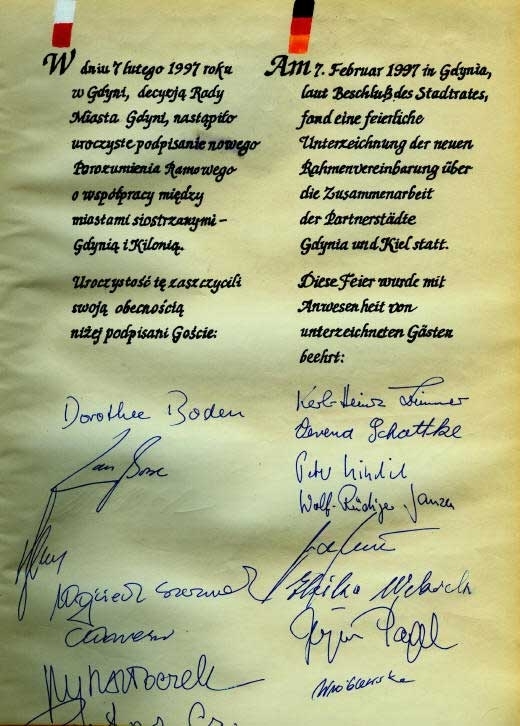 W dniu 7 lutego 1997 roku
w Gdyni, decyzją Rady
Miasta Gdyni, nastąpiło
uroczyste podpisanie nowego
Porozumienia Ramowego
o współpracy między
miastami siostrzanymi –
Gdynią i Kilonią.
Uroczystość tę zaszczycili
swoją obecnością
niżej podpisani Goście:
Am 7. Februar 1997 in Gdynia,
laut Beschluß des Stadtrates,
fand eine feierliche
Unterzeichnung der neuen
Rahmenvereinbarung über
die Zusammenarbeit
der Partnerstädte
Gdynia und Kiel statt.
Diese Feier wurde mit
Anwesenheit von
unterzeichneten Gästen
beehrt:
Dorothee Boden
Wojciech
Karl-Heinz
Schattke
Peter
Wolf-Rüdiger Janzen